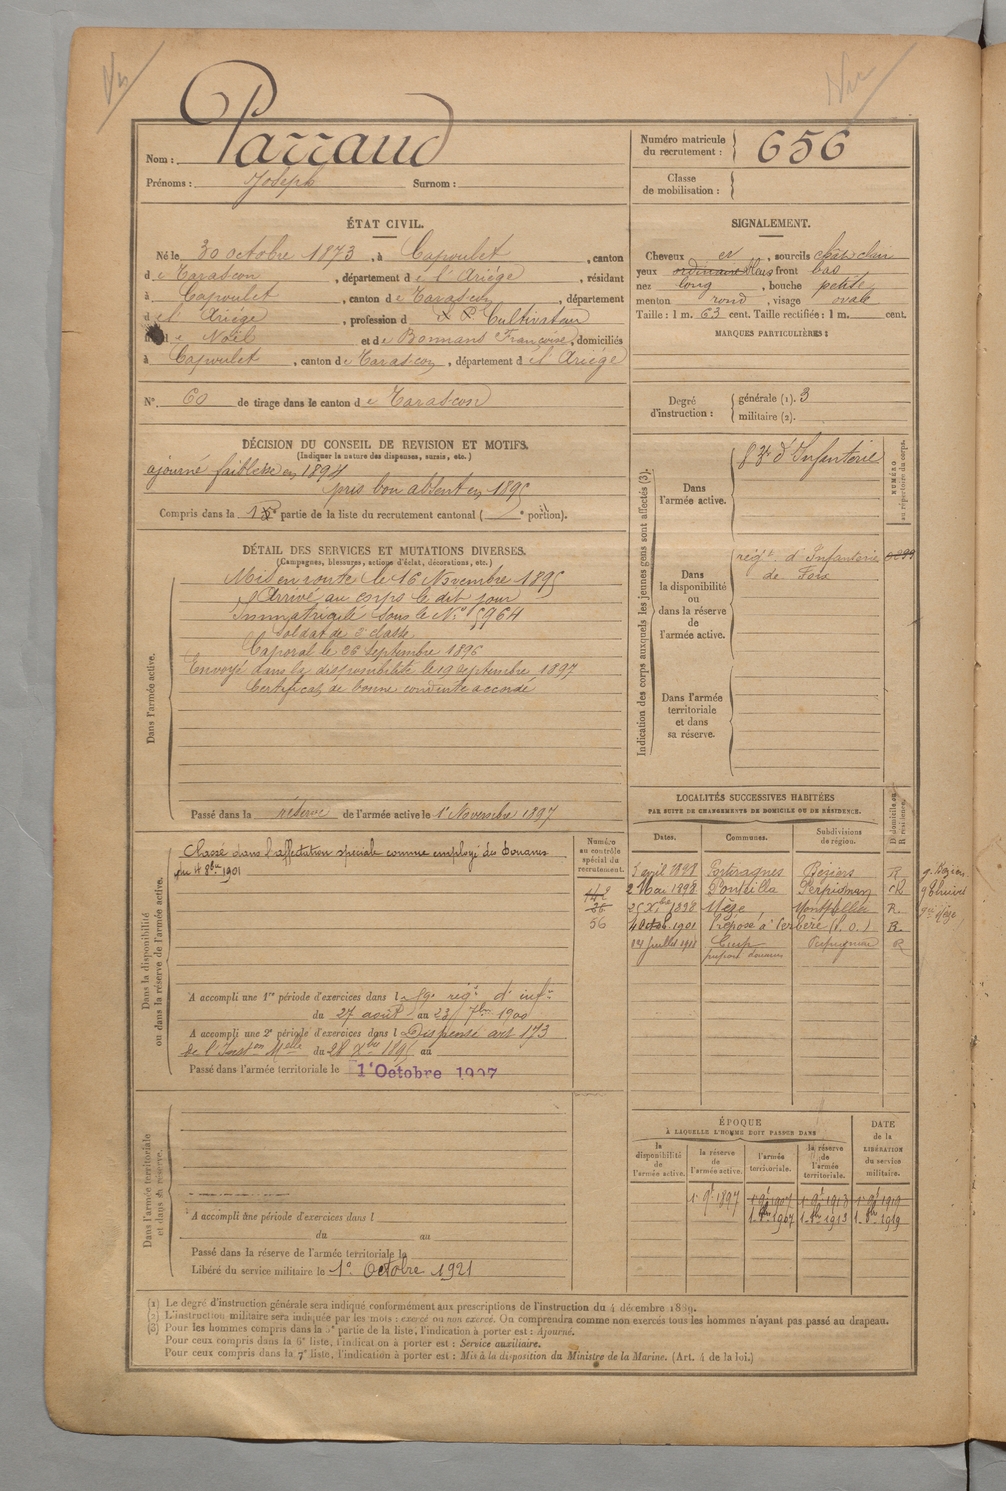 Parraud
Nom :
Prénoms : Joseph Surnom :
Numéro matricule
du recrutement : 656
Classe
de mobilisation :
ÉTAT CIVIL.
Né le 30 octobre 1873, à Capoulet, canton
de Tarascon, département de l'Ariège, résidant
à Capoulet, canton de Tarascon, département
de l'Ariège, profession de Cultivateur
de Noël et de Bonnans Françoise, domiciliés
à Capoulet, canton de Tarascon, département de l'Ariège
N° 60 de tirage dans le canton de Tarascon
SIGNALEMENT.
Cheveux et, sourcils chât clair
yeux ordinaire bleus front bas
nez long, bouche petite
menton rond, visage ovale
Taille : 1 m. 63 cent. Taille rectifiée : 1 m. cent.
MARQUES PARTICULIÈRES :
Degré
d'instruction :
générale (1). 3
militaire (2).
DÉCISION DU CONSEIL DE REVISION ET MOTIFS.
(Indiquer la nature des dispenses, sursis, etc.)
ajourné faiblesse en 1894
pris bon absent en 1895
Compris dans la 1re partie de la liste du recrutement cantonal ( e portion).
DÉTAIL DES SERVICES ET MUTATIONS DIVERSES.
(Campagnes, blessures, actions d'éclat, décorations, etc.)
Dans l'armée active.
Mis en route le 16 Novembre 1895
Arrivé au corps le dit jour
Immatriculé sous le N° 5964
Soldat de 2e classe
Caporal le 26 Septembre 1896
Envoyé dans la disponibilité le 19 Septembre 1897
Certificat de bonne conduite accordé
Passé dans la réserve de l'armée active le 1er Novembre 1897
Indication des corps auxquels les jeunes gens sont affectés (3).
NUMÉRO
au répertoire du corps.
Dans
l'armée active.
d'Infanterie
Dans
la disponibilité
ou
dans la réserve
de
l'armée active.
régt d'Infanterie
de Foix
Dans l'armée
territoriale
et dans
sa réserve.
Dans la disponibilité
ou dans la réserve de l'armée active.
Classé dans l'affectation spéciale comme employé des Douanes
du 4 8bre 1901
Numéro
au contrôle
spécial du
recrutement.
142
36
56
A accompli une 1re période d'exercices dans l régt d'inft
du 27 août au 23 7bre 1900
A accompli une 2e période d'exercices dans l Dispensé art 173
de l'Inston Melle du 28 Xbre 1895 au
Passé dans l'armée territoriale le 1er Octobre 1907
LOCALITÉS SUCCESSIVES HABITÉES
PAR SUITE DE CHANGEMENTS DE DOMICILE OU DE RÉSIDENCE.
Dates. Communes. Subdivisions
de région. D. domicile ou
R. résidence.
5 avril 1898 Portiragnes Béziers R
2 Mai 1898 Ponteilla Perpignan R
25 Xbre 1898 Mèze Montpellier R.
4 Octob. 1901 Préposé à Cerbère (P. O.) R.
14 juillet 1918 Perpignan R
Dans l'armée territoriale
et dans sa réserve.
A accompli une période d'exercices dans l
du au
Passé dans la réserve de l'armée territoriale le
Libéré du service militaire le 1er Octobre 1921
ÉPOQUE
À LAQUELLE L'HOMME DOIT PASSER DANS
la
disponibilité
de
l'armée active.
la réserve
de
l'armée active.
l'armée
territoriale.
la réserve
de
l'armée
territoriale.
DATE
de la
LIBÉRATION
du service
militaire.
1er 9bre 1897 1er 9bre 1907 1er 9bre 1913 1er 9bre 1919
1er 8bre 1907 1er 8bre 1913 1er 8bre 1919
(1) Le degré d'instruction générale sera indiqué conformément aux prescriptions de l'instruction du 4 décembre 1889.
(2) L'instruction militaire sera indiquée par les mots : exercé ou non exercé. On comprendra comme non exercés tous les hommes n'ayant pas passé au drapeau.
(3) Pour les hommes compris dans la 5e partie de la liste, l'indication à porter est : Ajourné.
Pour ceux compris dans la 6e liste, l'indication à porter est : Service auxiliaire.
Pour ceux compris dans la 7e liste, l'indication à porter est : Mis à la disposition du Ministre de la Marine. (Art. 4 de la loi.)